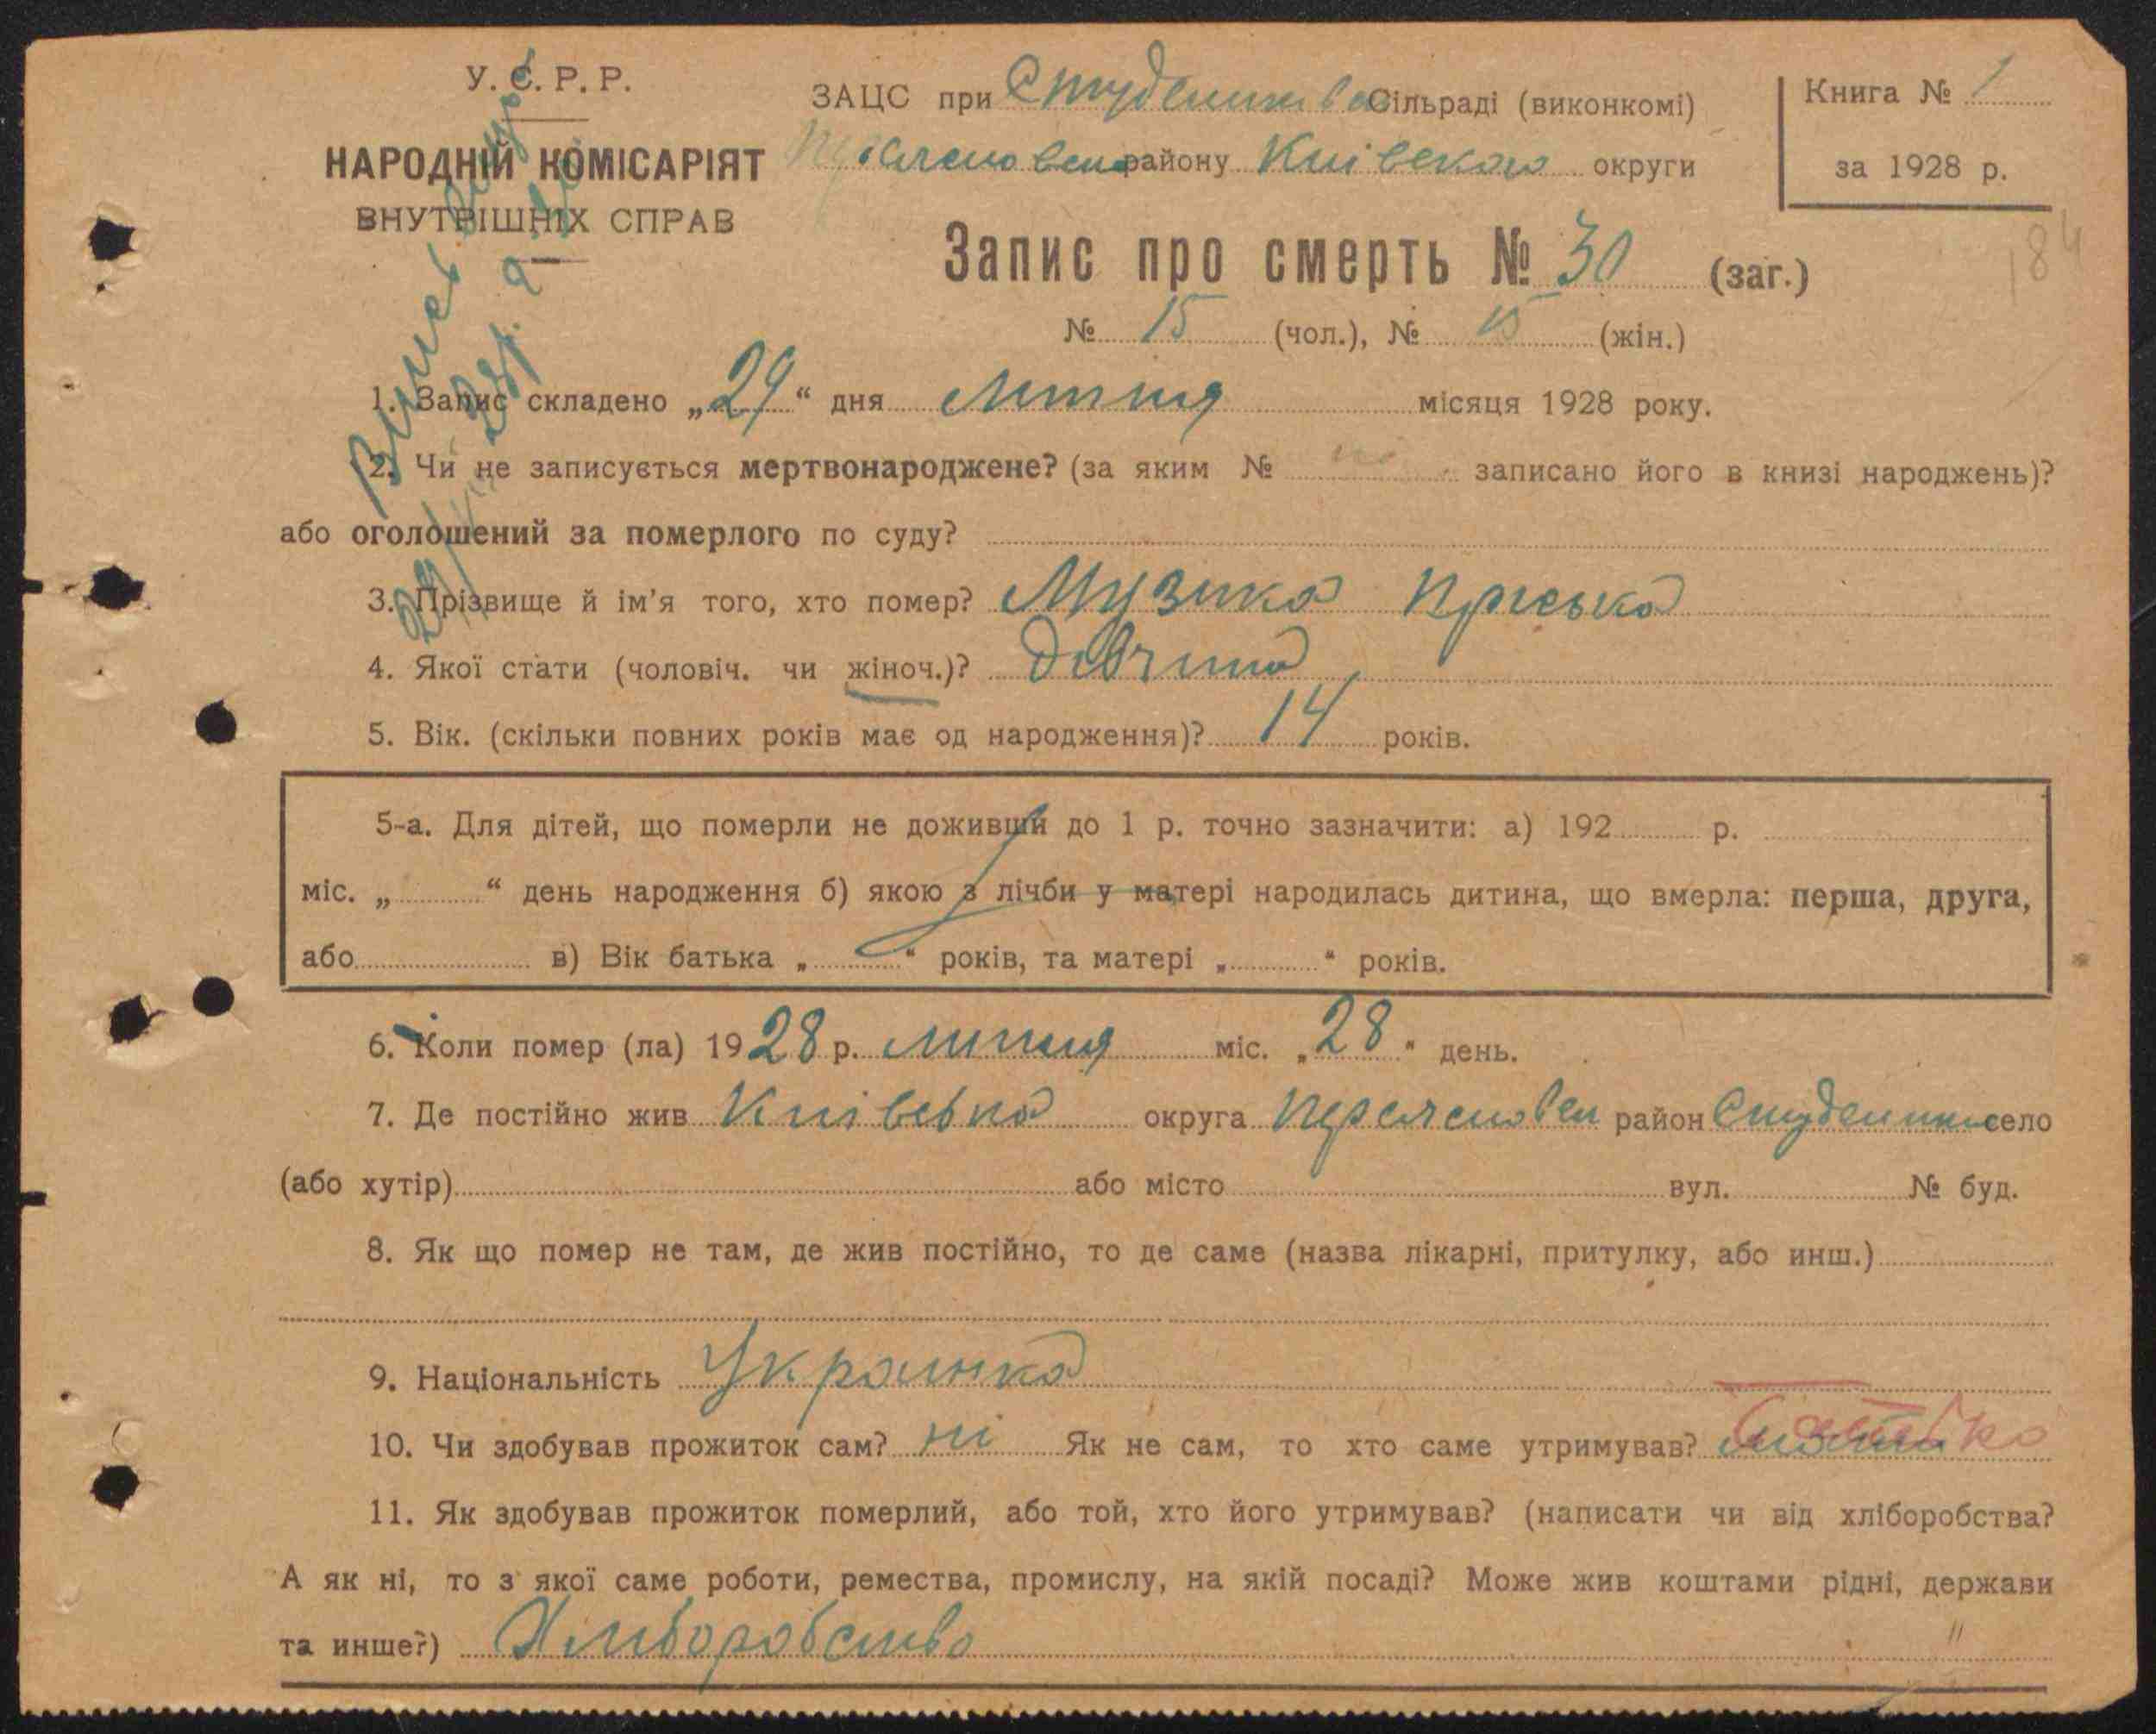 У. С. Р. Р.
НАРОДНІЙ КОМІСАРІЯТ
ВНУТРІШНІХ СПРАВ
ЗАЦС при Студениківськ Сільраді (виконкомі)
району Київської округи
Книга № 1
за 1928 р.
184
Запис про смерть № 30 (заг.)
№ 15 (чол.), № 15 (жін.)
1. Запис складено „29“ дня липня місяця 1928 року.
2. Чи не записується мертвонароджене? (за яким № записано його в книзі народжень)?
або оголошений за померлого по суду?
3. Прізвище й ім'я того, хто помер? Музика Пріська
4. Якої стати (чоловіч. чи жіноч.)? дівчина
5. Вік. (скільки повних років має од народження)? 14 років.
5-а. Для дітей, що померли не доживши до 1 р. точно зазначити: а) 192 р.
міс. „ “ день народження б) якою з лічби у матері народилась дитина, що вмерла: перша, друга,
або в) Вік батька „ “ років, та матері „ “ років.
6. Коли помер (ла) 1928 р. липня міс. „28“ день.
7. Де постійно жив Київська округа Переяславськ район Студеники село
(або хутір) або місто вул. № буд.
8. Як що помер не там, де жив постійно, то де саме (назва лікарні, притулку, або инш.)
9. Національність Украинка
10. Чи здобував прожиток сам? ні Як не сам, то хто саме утримував? батько
11. Як здобував прожиток померлий, або той, хто його утримував? (написати чи від хліборобства?
А як ні, то з якої саме роботи, ремества, промислу, на якій посаді? Може жив коштами рідні, держави
та инше?) Хліборобство